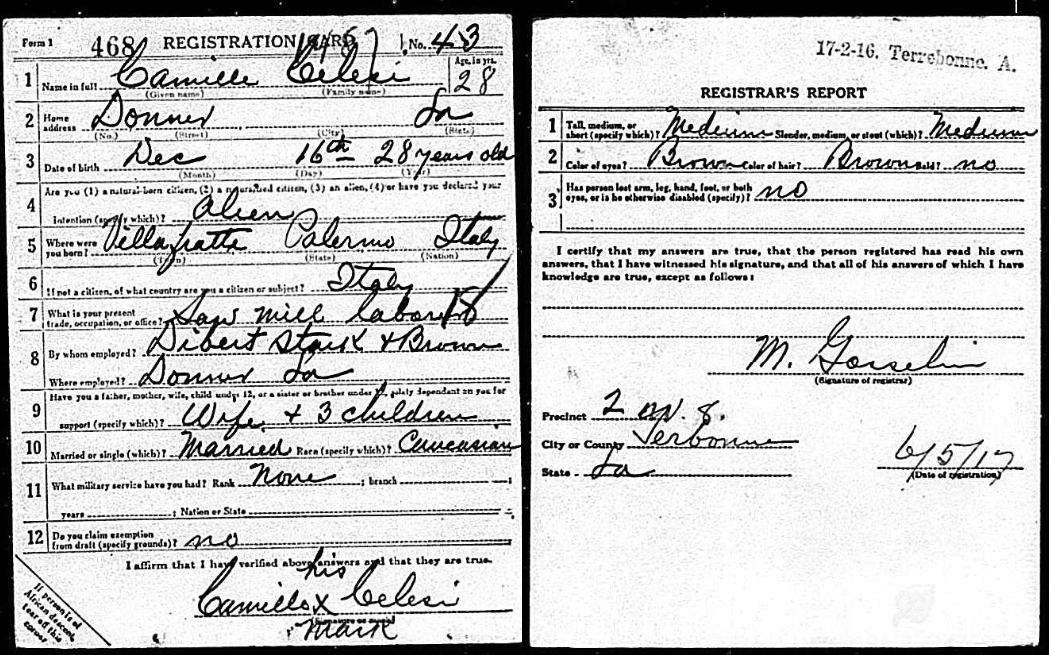 Form 1 468 REGISTRATION CARD No. 43
1 Name in full Camille Celesi Age, in yrs. 28
(Given name) (Family name)
2 Home address Donner La
(No.) (Street) (City) (State)
3 Date of birth Dec 16th 28 years old
(Month) (Day) (Year)
4 Are you (1) a natural-born citizen, (2) a naturalized citizen, (3) an alien, (4) or have you declared your
intention (specify which)? Alien
5 Where were you born? Villafratte Palermo Italy
(Town) (State) (Nation)
6 If not a citizen, of what country are you a citizen or subject? Italy
7 What is your present trade, occupation, or office? Saw mill laborer 18
8 By whom employed? Dibert Stark & Brown
Where employed? Donner La
9 Have you a father, mother, wife, child under 12, or a sister or brother under 12, solely dependent on you for
support (specify which)? Wife & 3 children
10 Married or single (which)? Married Race (specify which)? Caucasian
11 What military service have you had? Rank None ; branch ;
years ; Nation or State
12 Do you claim exemption from draft (specify grounds)? no
I affirm that I have verified above answers and that they are true.
his
Camillo x Celesi
(Signature or mark)
mark
If person is of African descent, tear off this corner
17-2-16. Terrebonne. A.
REGISTRAR'S REPORT
1 Tall, medium, or short (specify which)? Medium Slender, medium, or stout (which)? Medium
2 Color of eyes? Brown Color of hair? Brown Bald? no
3 Has person lost arm, leg, hand, foot, or both eyes, or is he otherwise disabled (specify)? no
I certify that my answers are true, that the person registered has read his own
answers, that I have witnessed his signature, and that all of his answers of which I have
knowledge are true, except as follows:
M. Gosselin
(Signature of registrar)
Precinct 2 W. 8.
City or County Terbonne
State La
6/5/17
(Date of registration)